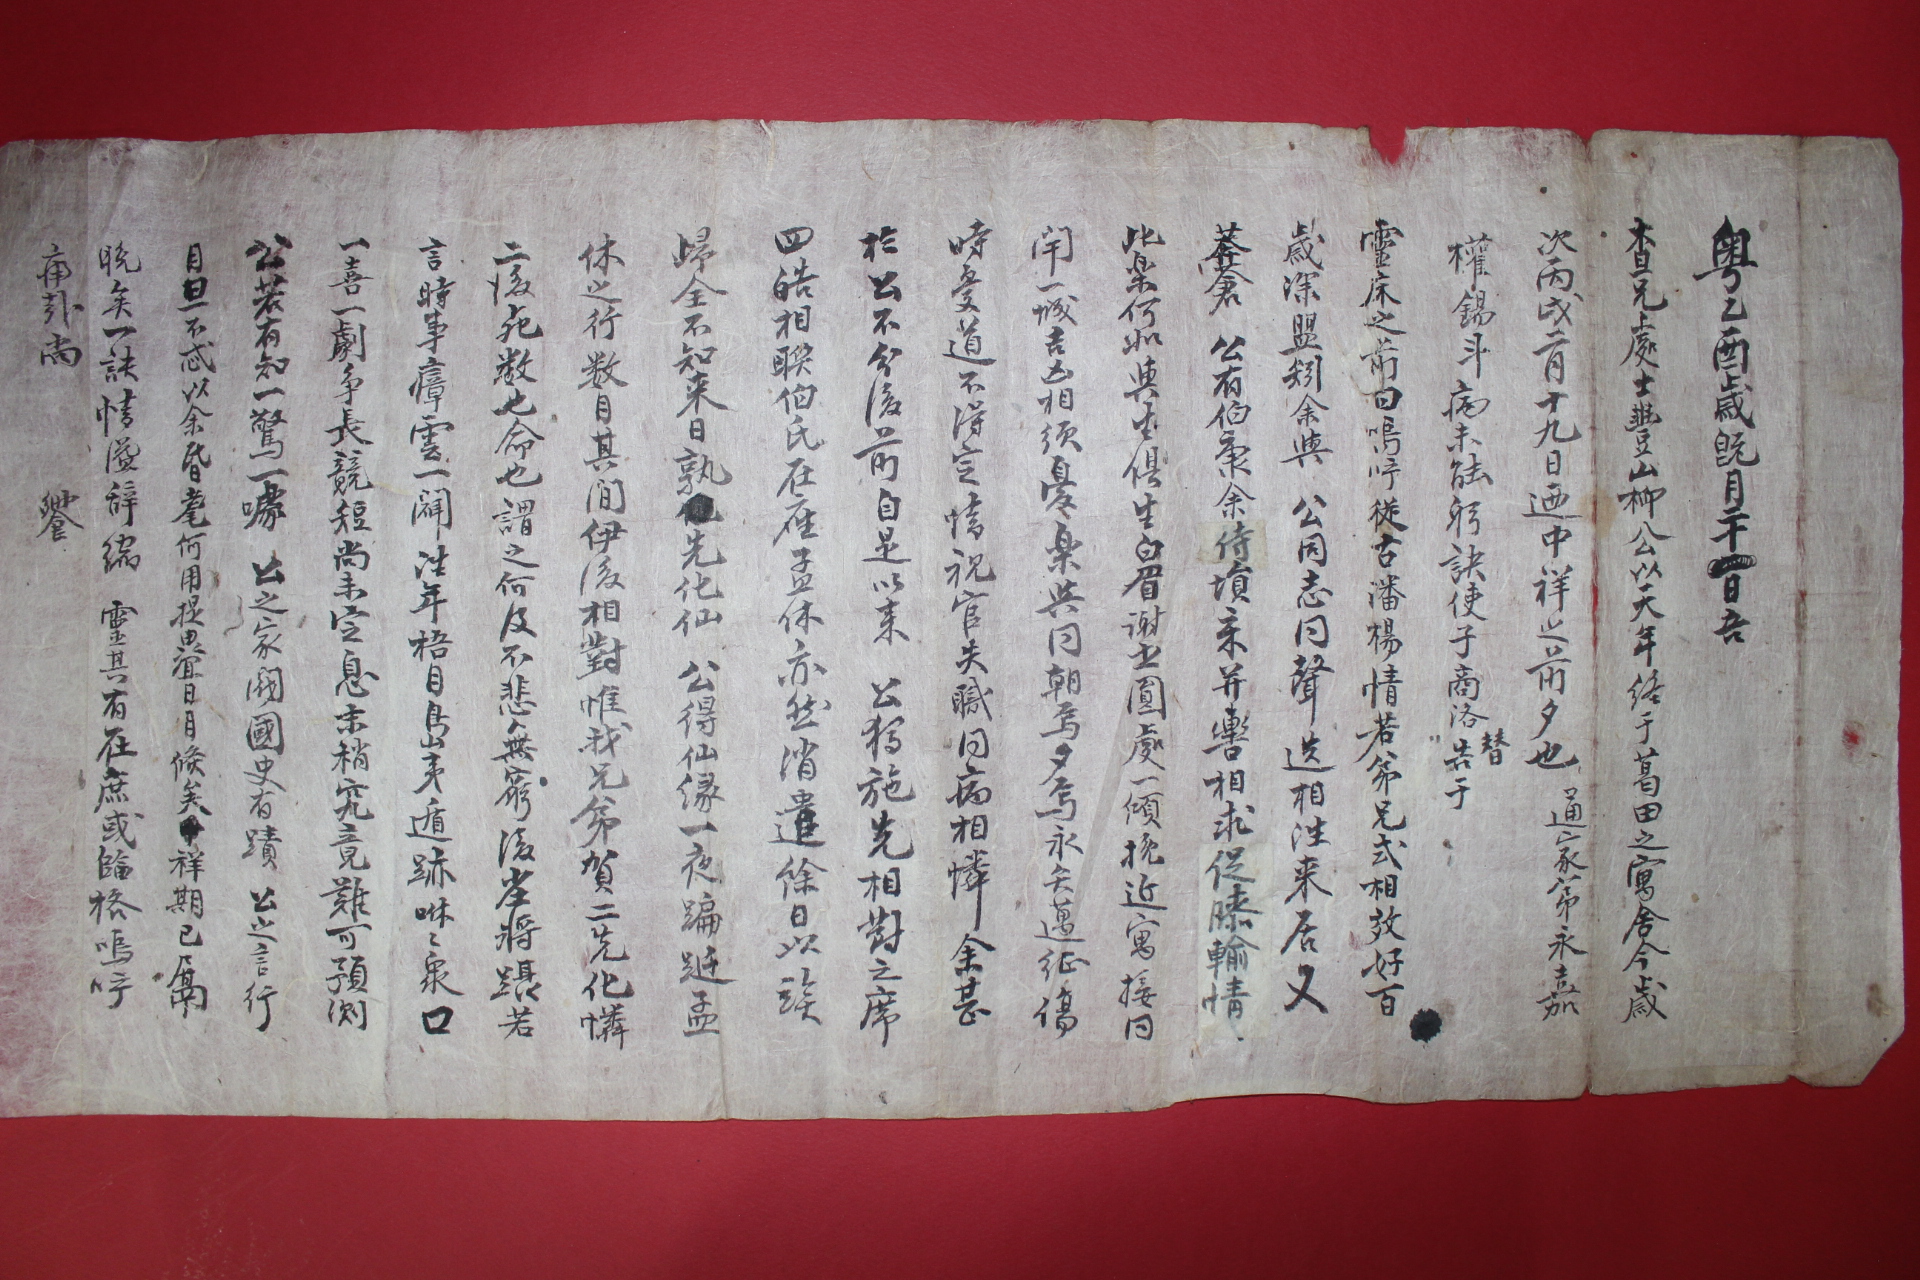 粤乙酉歲旣月二十一日吾
査兄處士豊山柳公以天年終于葛田之寓舍今歲
次丙戌二月十九日迺中祥之前夕也 通家弟永嘉
權錫斗病未能躬訣使子商洛替告于
靈床之前曰嗚呼從古潘楊情若弟兄式相效好百
歲深盟矧余與 公同志同聲迭相往來居又
葭蒼 公有伯衆余侍塤亲并轡相求促膝輸情
此樂何如與古俱生白眉謝土圓處一傾挽近寓接同
閈一城吉凶相須憂樂共同朝焉夕焉永矢邁征傷
時憂道不得定情祝官失職同病相憐余甚
於公不分後前自是以來 公獨施先相對之席
四皓相聯伯氏在座孟休亦然消遣餘日以談
歸全不知來日孰也先化仙 公得仙緣一夜蹁躚孟
休之行數月其間伊後相對惟我兄弟賀二先化憐
二後死數也命也謂之何及不悲無窮後坐將躡若
言時事瘴雲一闢往年格目島夷遁跡咻〻衆口
一喜一劇爭長競短尚未定息末稍究竟難可預測
公若有知一驚一噱 公之家閥國史有蹟 公之言行
目旦不忒以余昏耄何用提畏溢日月倏矣中祥期已屬
晩矣一訣情溢辭縮 靈其有在庶或臨格嗚呼
痛哉尙 饗